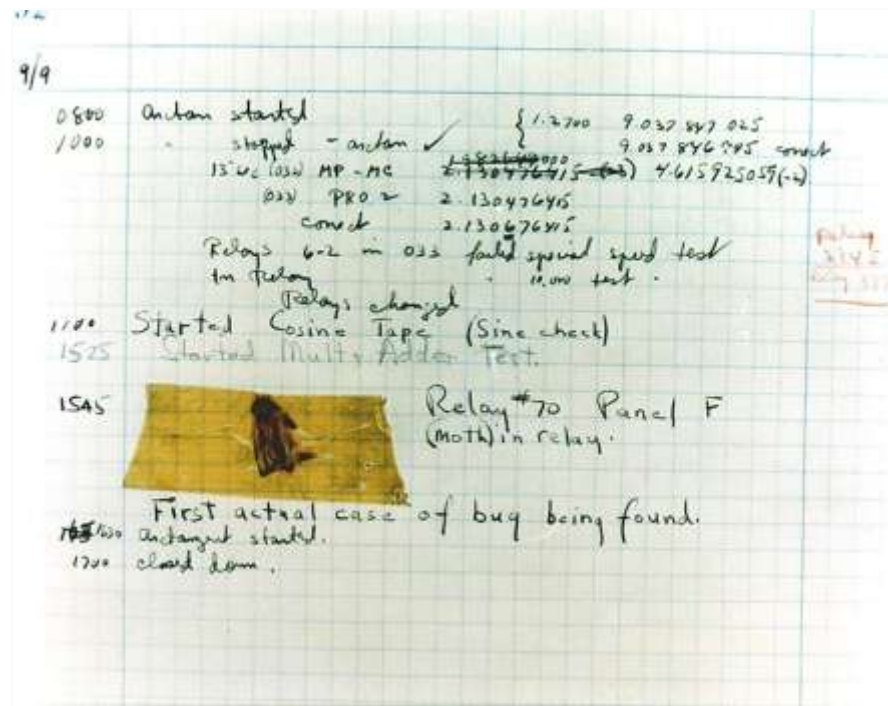 9/9
0800 Antan started
1000 " stopped - antan ✓ { 1.2700 9.037 847 025
9.037 846 795 correct
13"uc (032) MP - MC 2.130476415 4.615925059(-2)
(033) PRO 2 2.130476415
correct 2.130676415
Relays 6-2 in 033 failed special speed test
In Relay " 10.000 test .
Relays changed
1100 Started Cosine Tape (Sine check)
1525 Started Mult + Adder Test.
1545 Relay #70 Panel F
(moth) in relay.
First actual case of bug being found.
1630 antangent started.
1700 closed down .